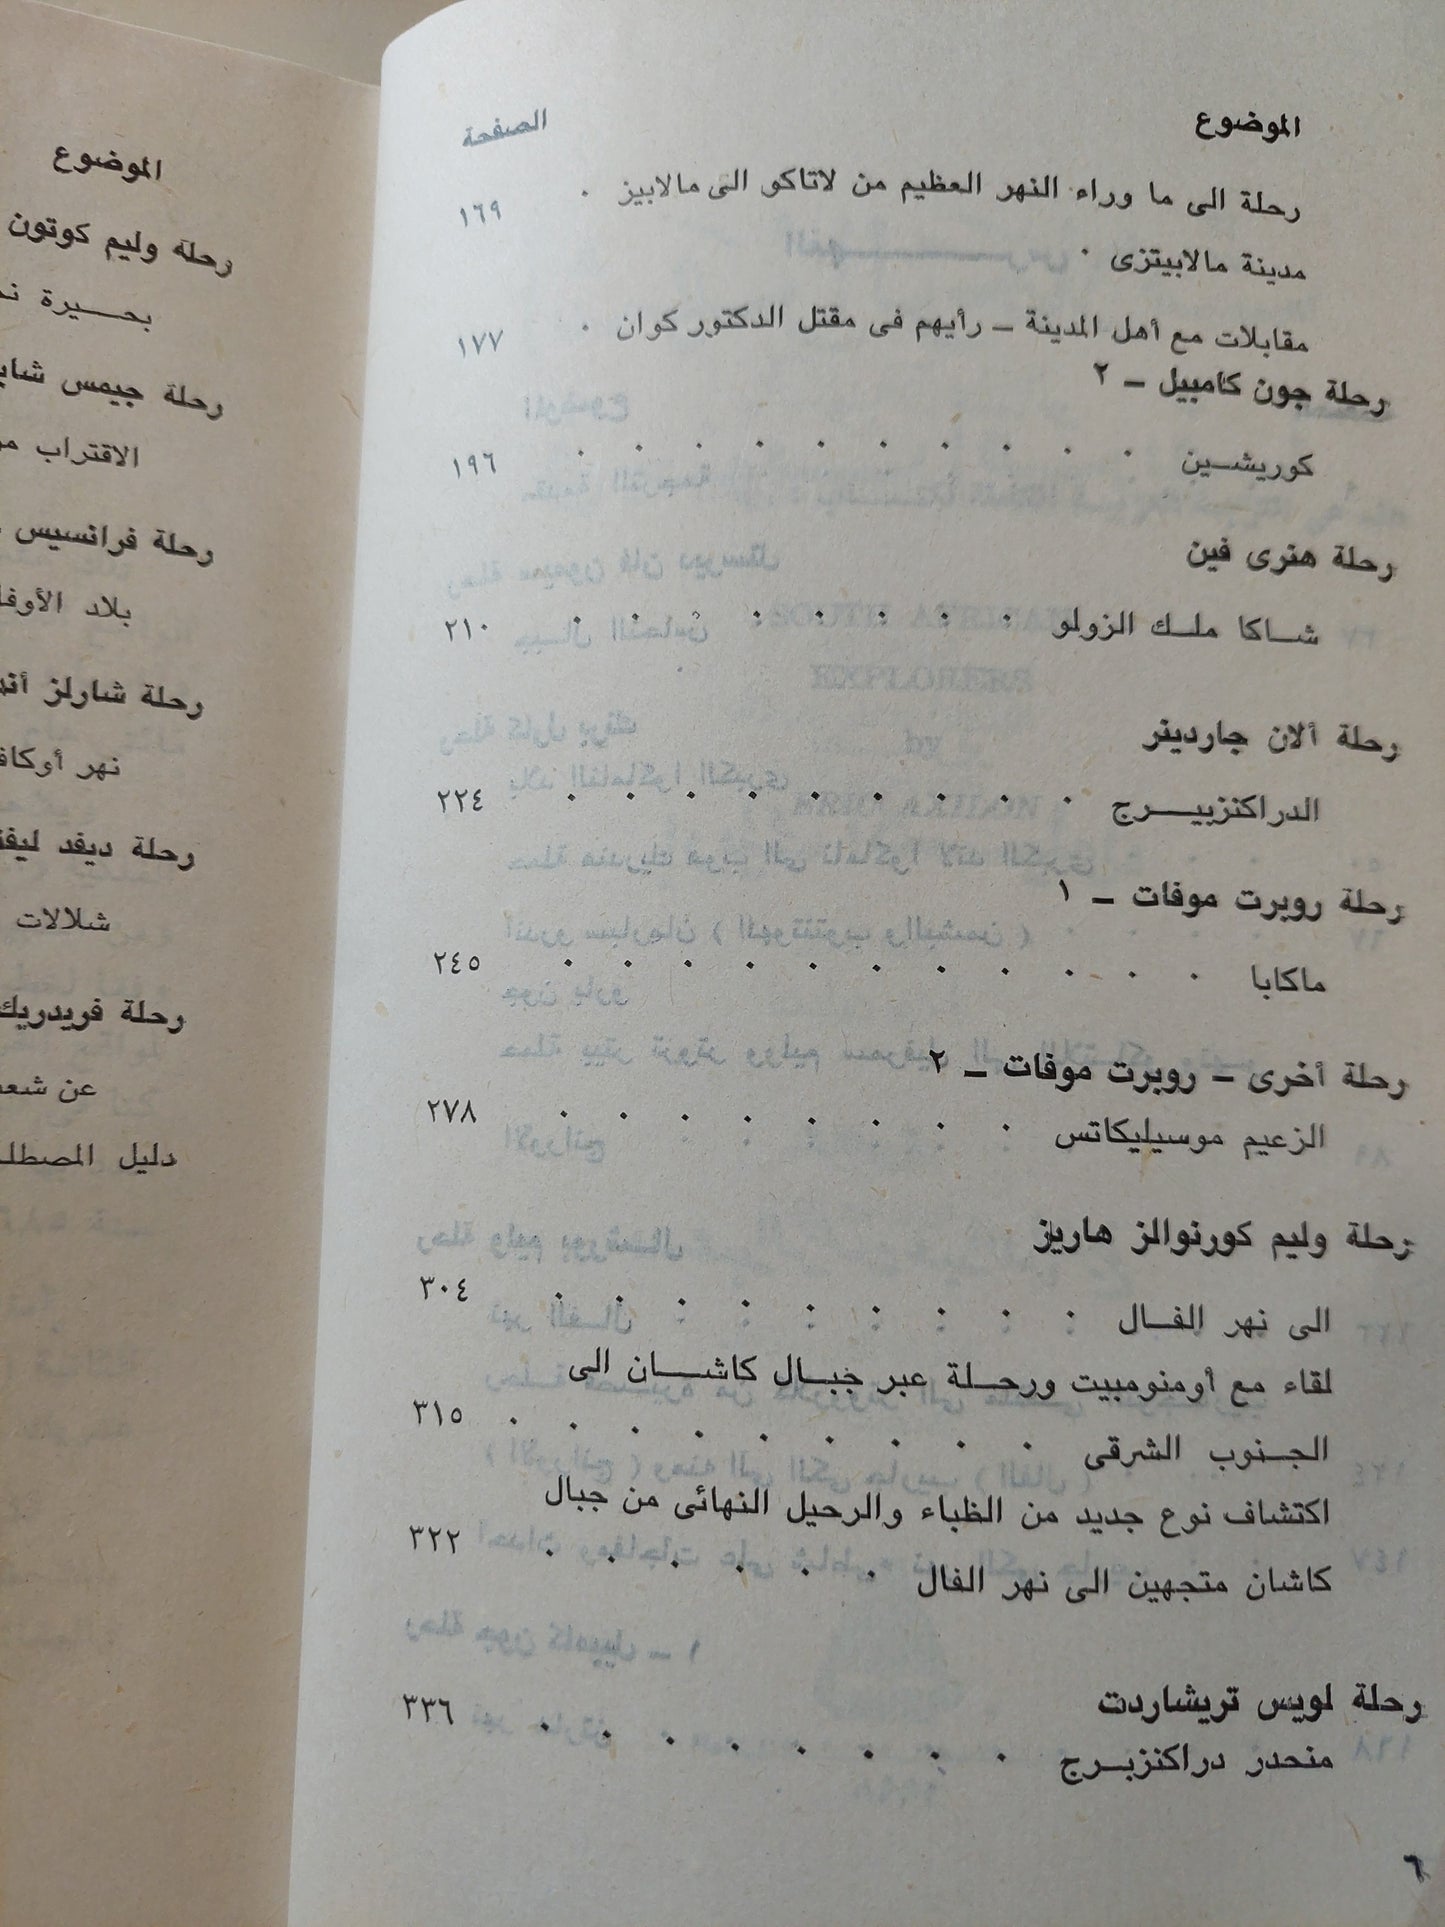 الموضوع الصفحة
رحلة الى ما وراء النهر العظيم من لاتاكو الى مالابيز . ١٦٩
مدينة مالابيتزى .
مقابلات مع أهل المدينة – رأيهم فى مقتل الدكتور كوان . ١٧٧
رحلة جون كامبيل – ٢
كوريشين . . . . . . . . . . ١٩٦
رحلة هنرى فين
شاكا ملك الزولو . . . . . . . . ٢١٠
رحلة ألان جاردينر
الدراكنزبيرج . . . . . . . . . ٢٢٤
رحلة روبرت موفات – ١
ماكابا . . . . . . . . . . . ٢٤٥
رحلة أخرى – روبرت موفات – ٢
الزعيم موسيليكاتس . . . . . . . . ٢٧٨
رحلة وليم كورنوالز هاريز
الى نهر الفال . . . . . . . . . ٣٠٤
لقاء مع أومنومبيت ورحلة عبر جبال كاشان الى
الجنوب الشرقى . . . . . . . . . ٣١٥
اكتشاف نوع جديد من الظباء والرحيل النهائى من جبال
كاشان متجهين الى نهر الفال . . . . . . ٣٢٢
رحلة لويس تريشاردت
منحدر دراكنزبرج . . . . . . . . ٣٣٦
٦
الموضوع
رحلة وليم كوتون
بحيرة
رحلة جيمس
الاقتراب
رحلة فرانسيس
بلاد
رحلة شارلز
نهر
رحلة ديفد
شلالات
رحلة فريدريك
عن
دليل